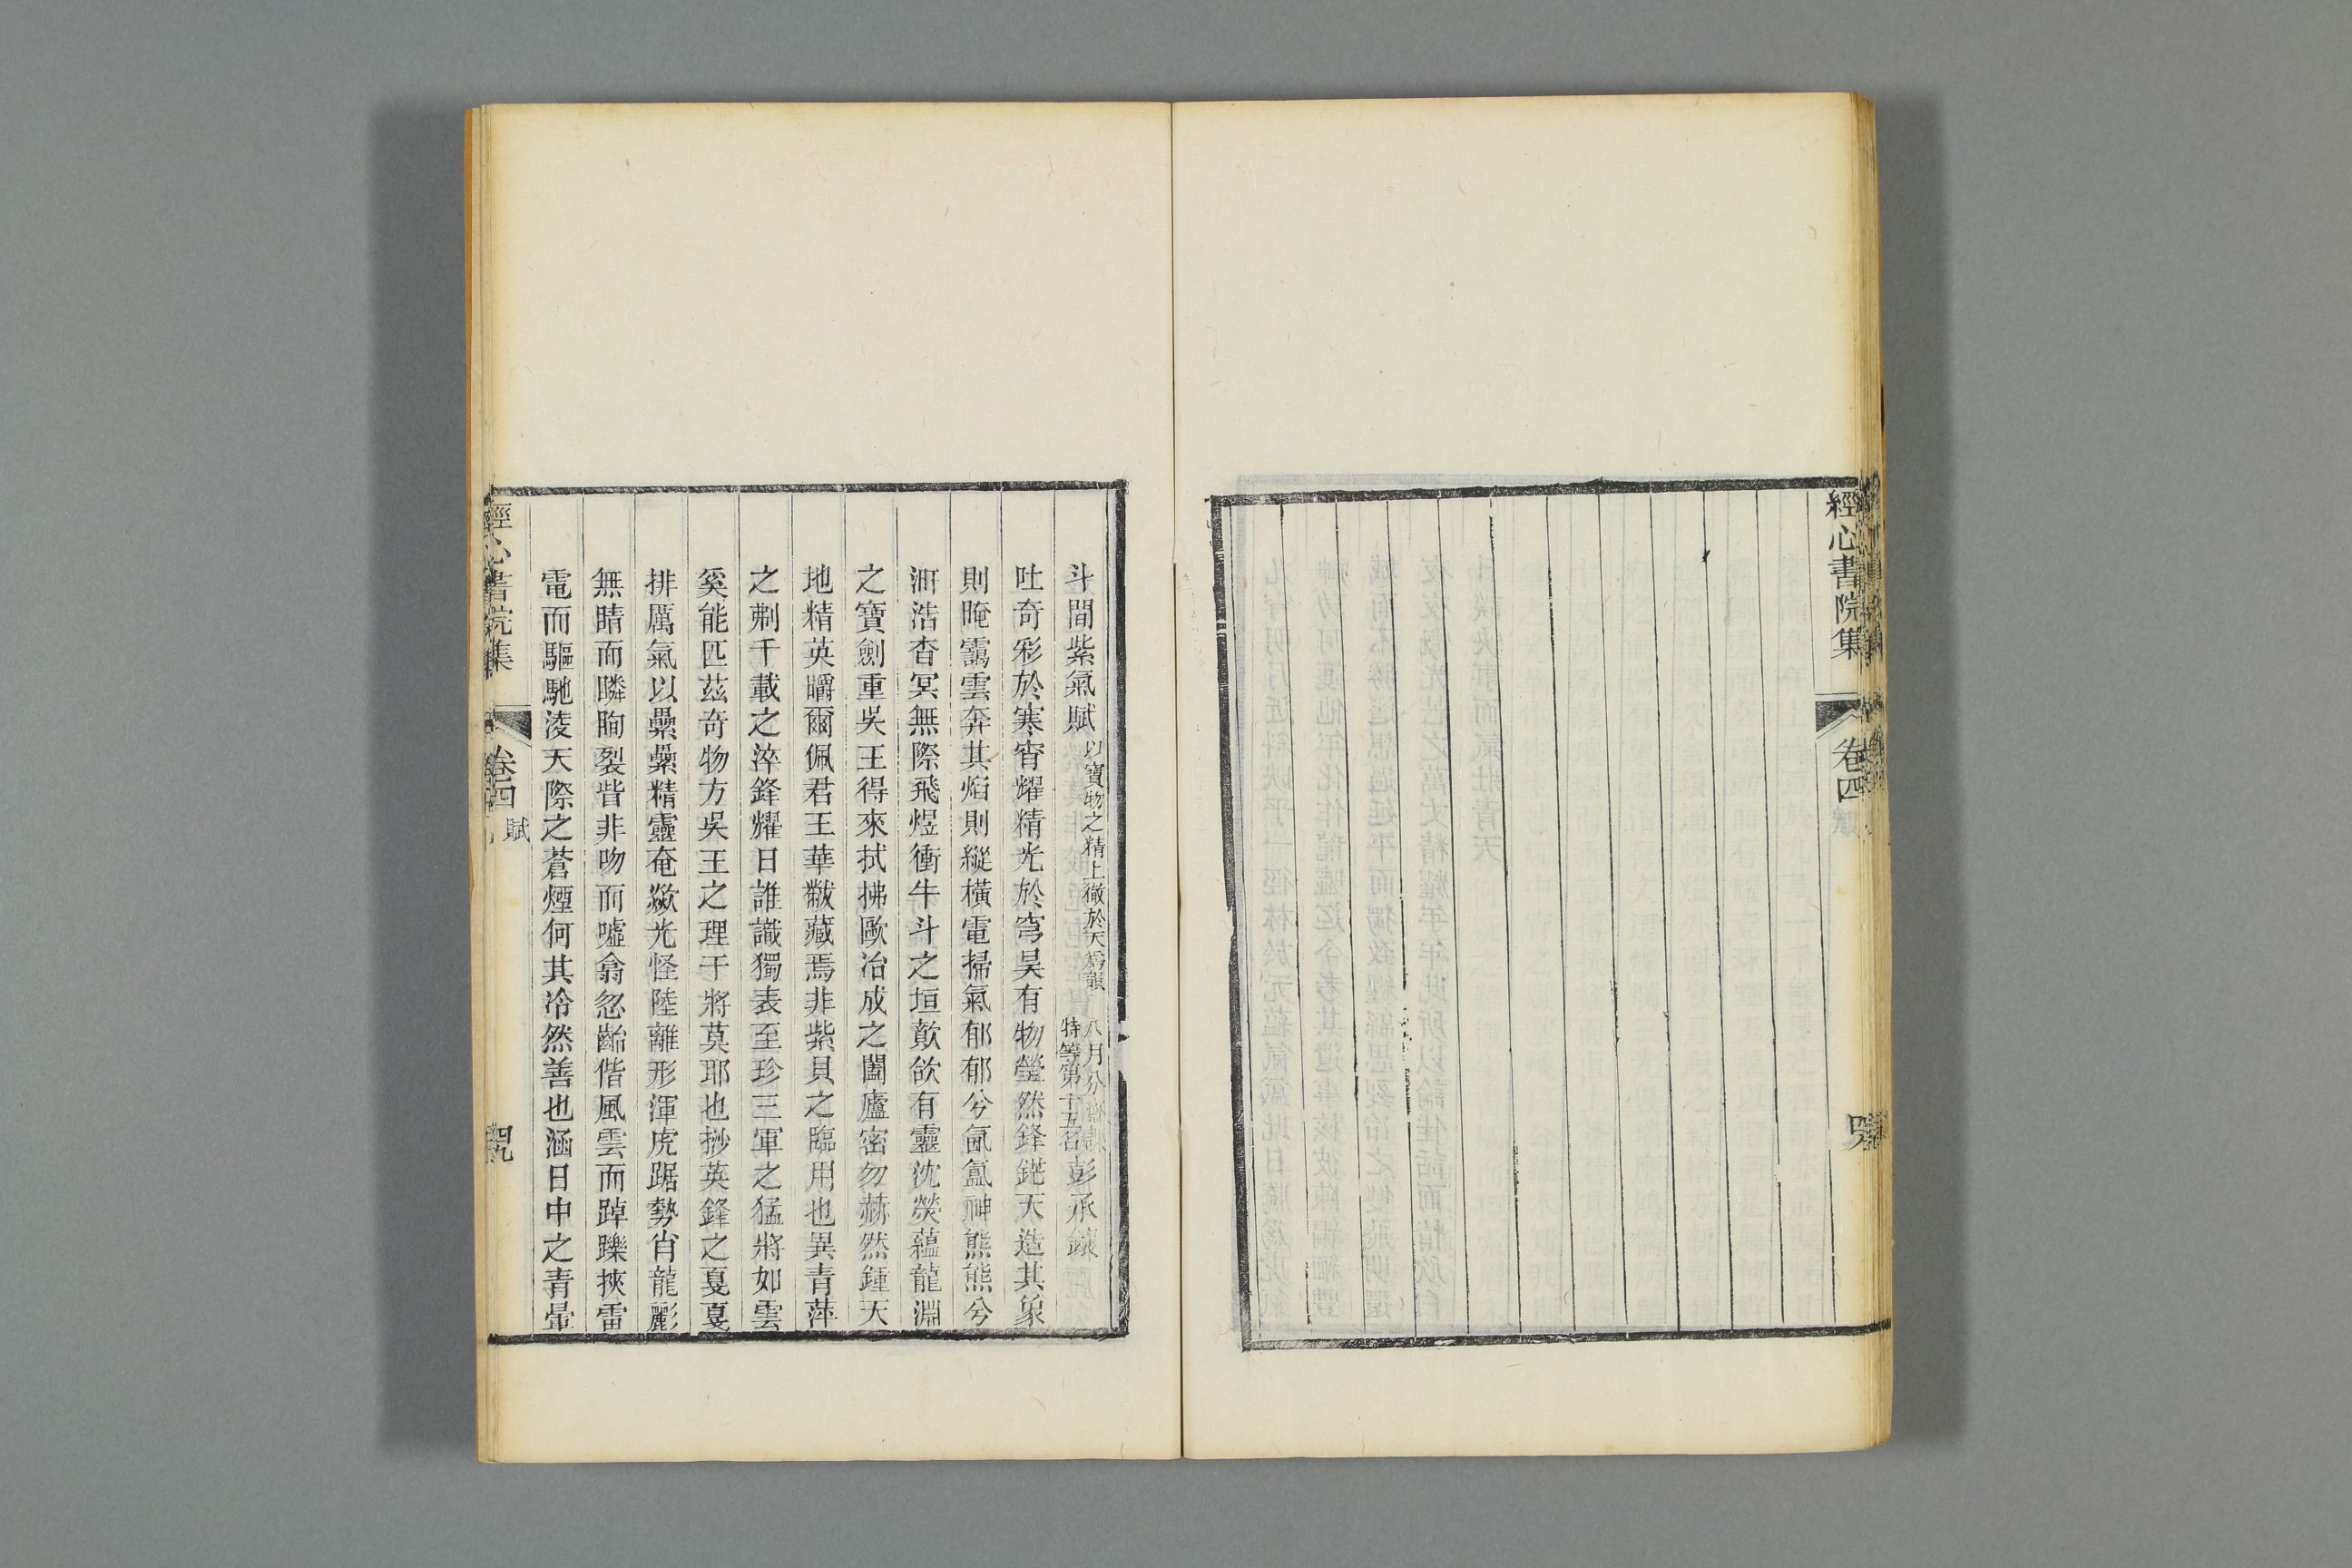 經心書院集
卷四
斗間紫氣賦 以寶物之精上徹於天為韻 八月分 特等第十五名 彭承
吐奇彩於寒宵耀精光於穹昊有物瑩然鋒鋩天造其象
則晻靄雲奔其焰則縱橫電掃氣郁郁兮氤氳神熊熊兮
浩杳冥無際飛煜衝牛斗之垣歎欲有靈沈熒蘊龍淵
之寶劍重吳王得來拭拂歐冶成之闔廬密勿赫然鍾天
地精英嚼爾佩君王華黻藏焉非紫貝之臨用也異青萍
之剸千載之淬鋒耀日誰識獨表至珍三軍之猛將如雲
奚能匹茲奇物方吳王之理干將莫耶也抄英鋒之戛戛
排厲氣以纍纍精靈奄歘光怪陸離形渾虎踞勢肖龍彲
無睛而瞵眴裂眥非吻而噓翕忽齝偕風雲而踔躒挾雷
電而驅馳淩天際之蒼煙何其冷然善也涵日中之青暈
經心書院集
卷四 賦